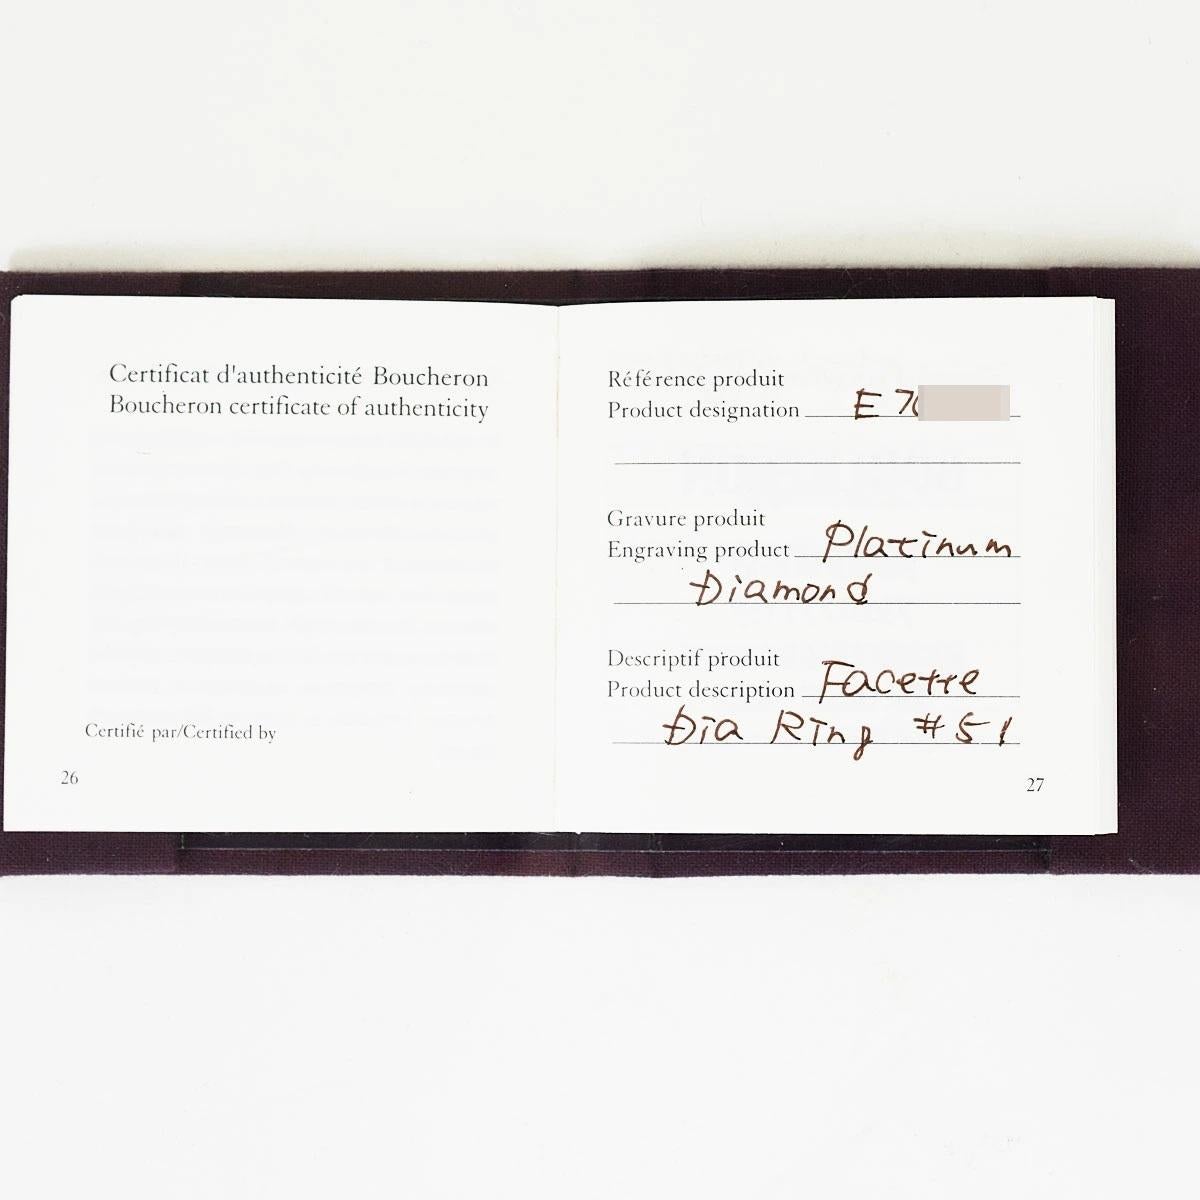 Certificat d'authenticité Boucheron
Boucheron certificate of authenticity
Certifié par/Certified by
26
Référence produit
Product designation E 70
Gravure produit
Engraving product Platinum
Diamond
Descriptif produit
Product description Facette
Dia Ring #51
27